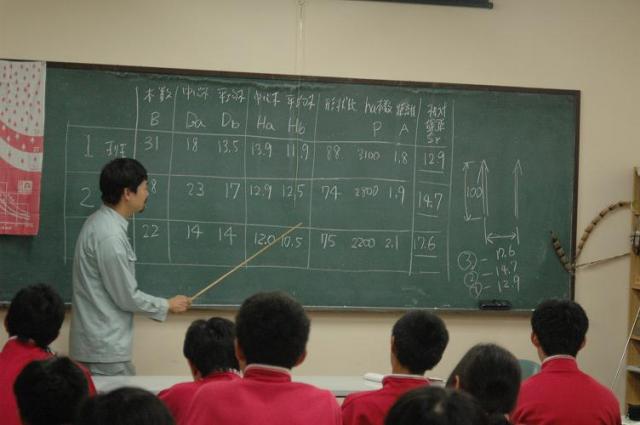 本数 中心木 平均木 中心木 平均木 形状比 ha本数 相対
B Da Db Ha Hb P A Sr
1 31 18 13.5 13.9 11.9 88 3100 1.8 12.9
2 8 23 17 12.9 12.5 74 2800 1.9 14.7
22 14 14 12.0 10.5 75 2200 2.1 17.6
100
③ - 17.6
② - 14.7
① - 12.9